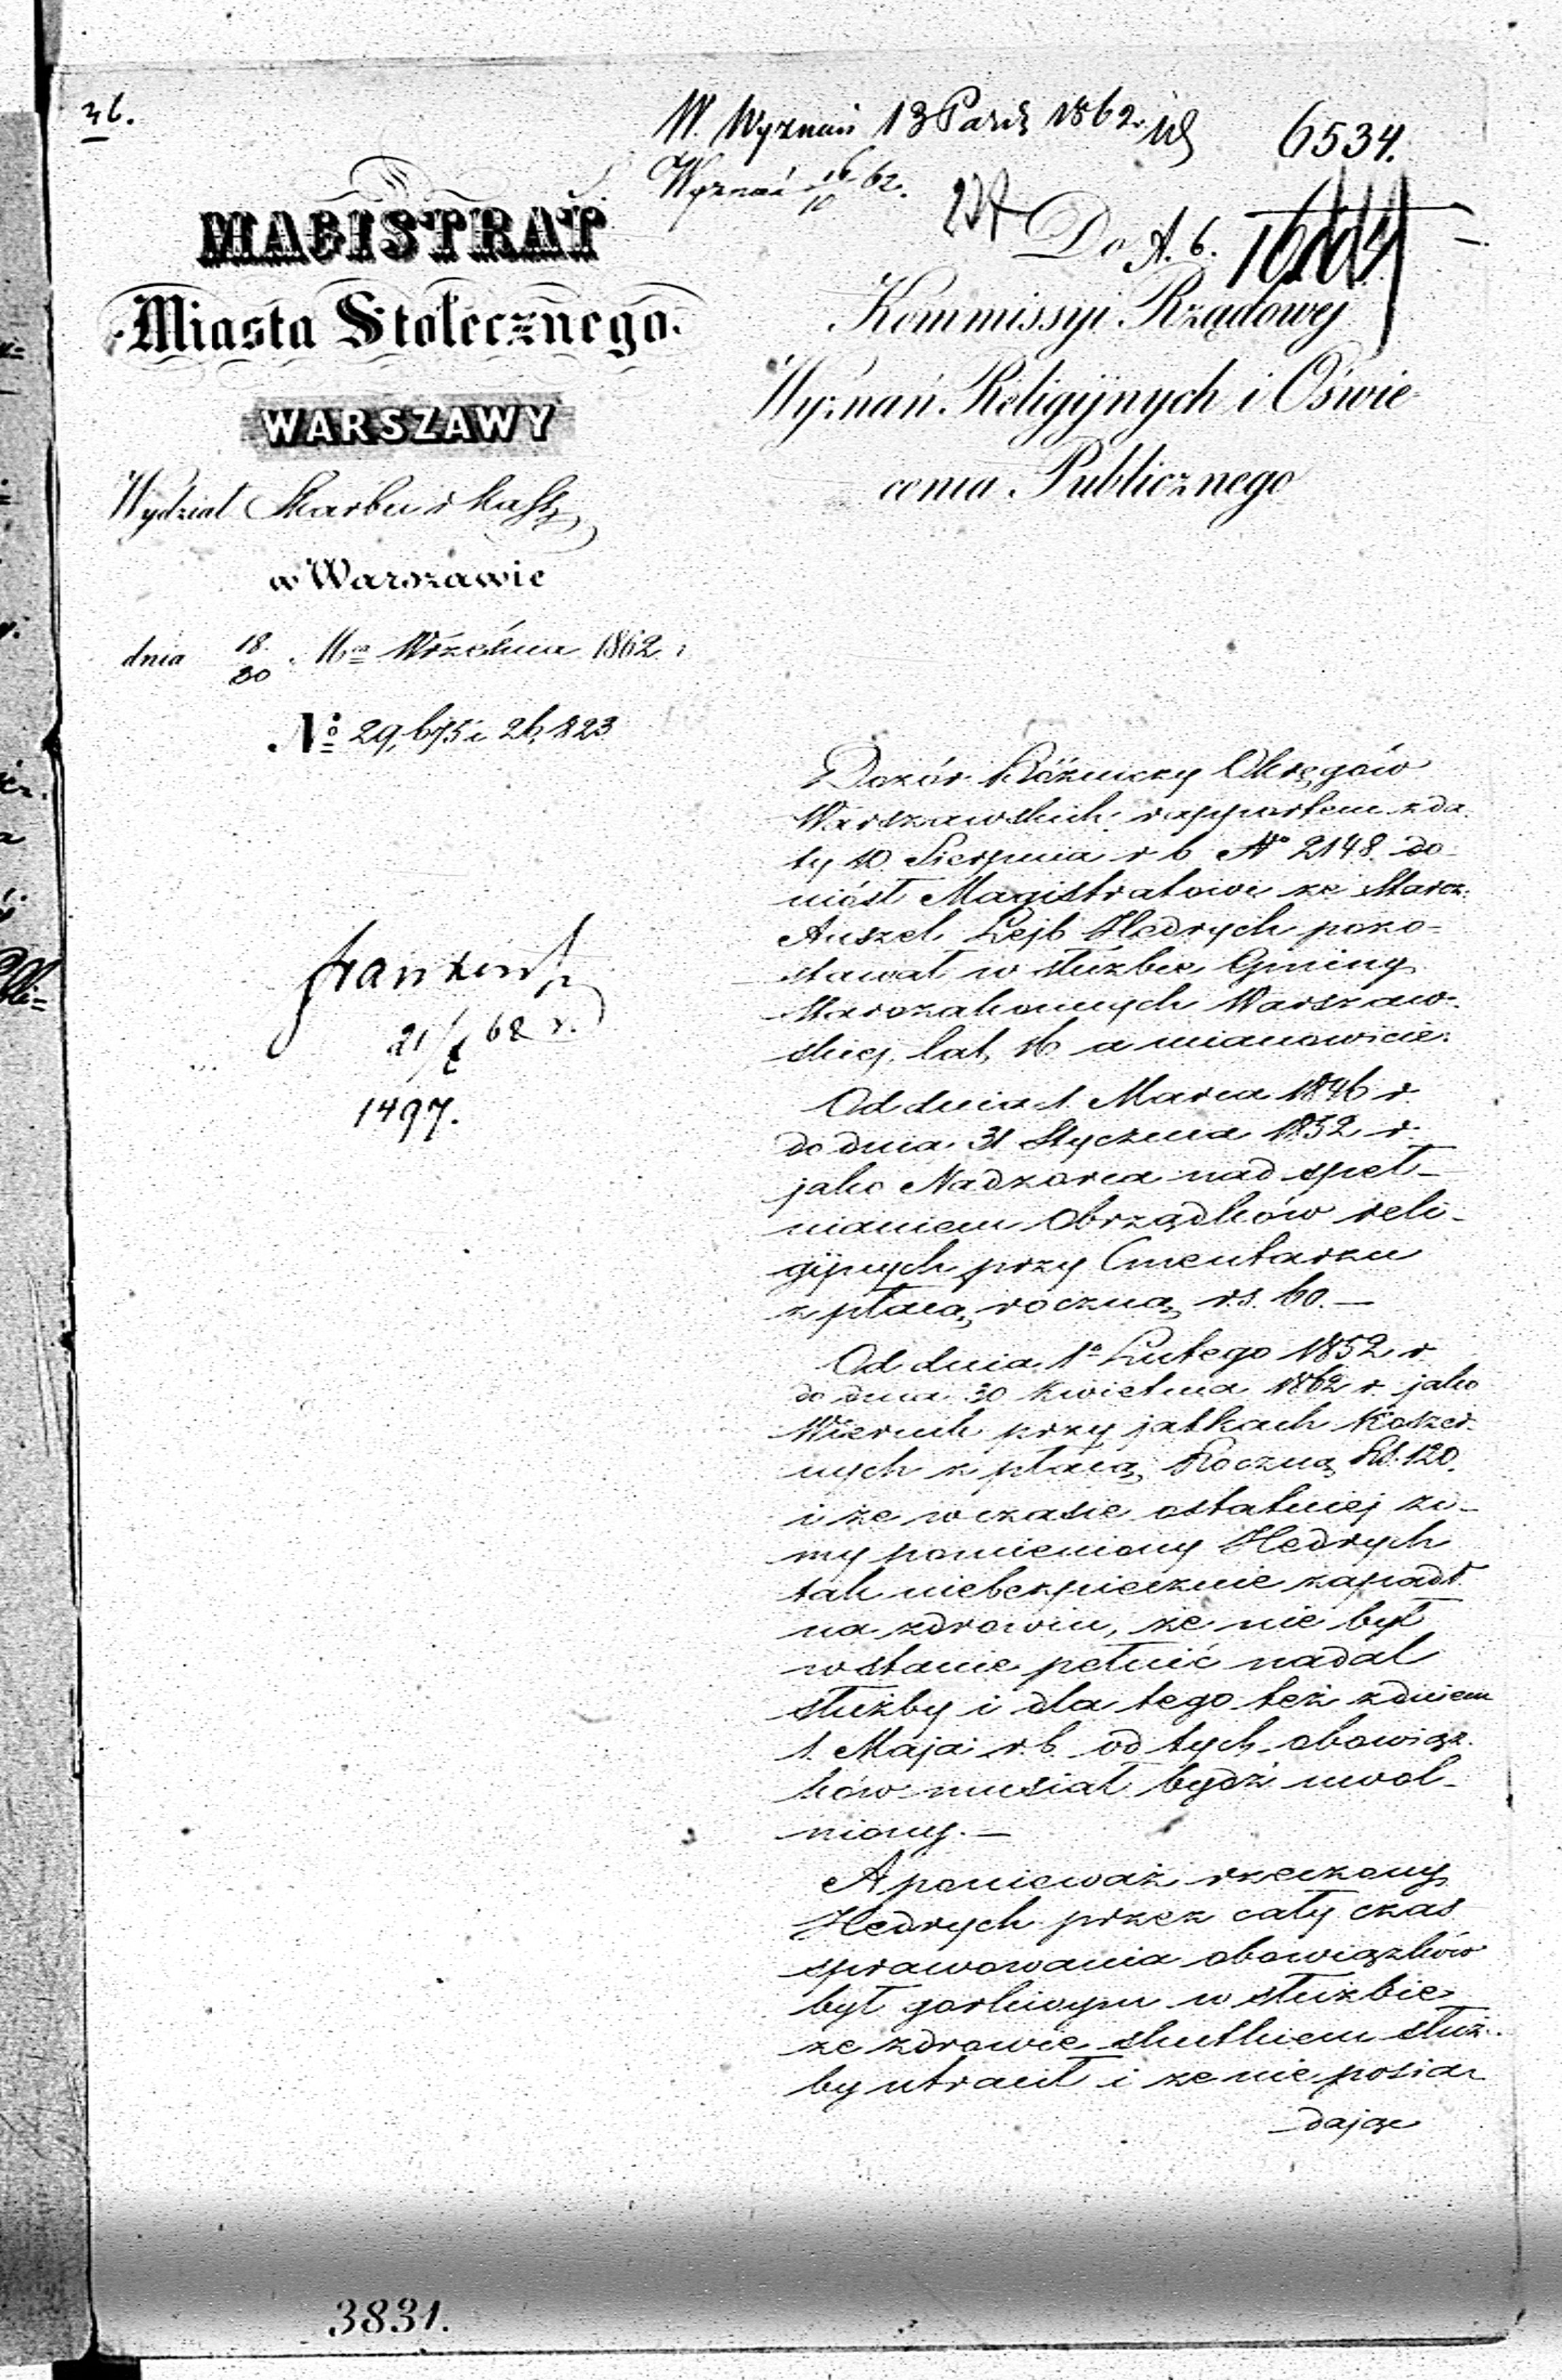 36.
W. Wyznań 13 Paźdź 1862.
6534.
Wyznań 16/10 62.
MAGISTRAT
Miasta Stołecznego
WARSZAWY
Wydział Skarbu i Kassy
w Warszawie
dnia 18/30 Mca Września 1862 r
No 29,675 i 26,823
Do A. 6.
Kommissyi Rządowej
Wyznań Religijnych i Oświe
cenia Publicznego
21/X 62 r.
1497.
Dozór Bóżniczy Okręgów
Warszawskich rapportem z da
ty 10 Sierpnia r b No 2148 do-
niósł Magistratowi że Starz.
Anszel Lejb Hedrych pozo-
stawał w służbie Gminy
Starozakonnych Warszaw-
skiej, lat 16 a mianowicie:
Od dnia 1 Marca 1846 r.
do dnia 31 Stycznia 1852 r.
jako Nadzorca nad speł-
nianiem Obrządków reli-
gijnych przy Cmentarzu
z płacą roczną rs. 60.—
Od dnia 1o Lutego 1852 r.
do dnia 30 Kwietnia 1862 r. jako
Wiernik przy jatkach Koszer-
nych z płacą Roczną Rs. 120.
i że w czasie ostatniej zi-
my pomieniony Hedrych
tak niebezpiecznie zapadł
na zdrowiu, że nie był
wstanie pełnić nadal
służby i dla tego też z dniem
1. Maja r. b. od tych obowiąz-
ków musiał bydź uwol-
niony.—
A ponieważ rzeczony
Hedrych przez cały czas
sprawowania obowiązków
był gorliwym w służbie
że zdrowie skutkiem służ-
by utracił i że nie posia-
dając
3831.